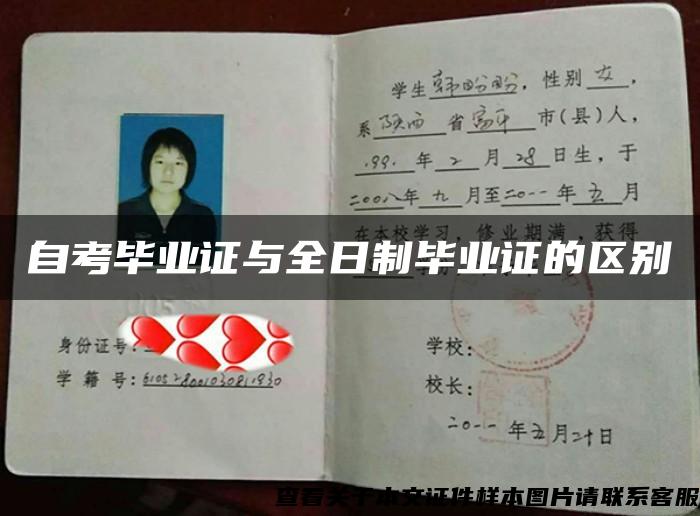 学生韩盼盼，性别女，
系陕西省富平市(县)人，
.991.年2月28日生，于
二00八年九月至二0一一年五月
在本校学习，修业期满，获得
自考毕业证与全日制毕业证的区别
身份证号：
学籍号：610528001030811930
学校：
校长：
二0一一年五月二十日
查看关于本文证件样本图片请联系客服